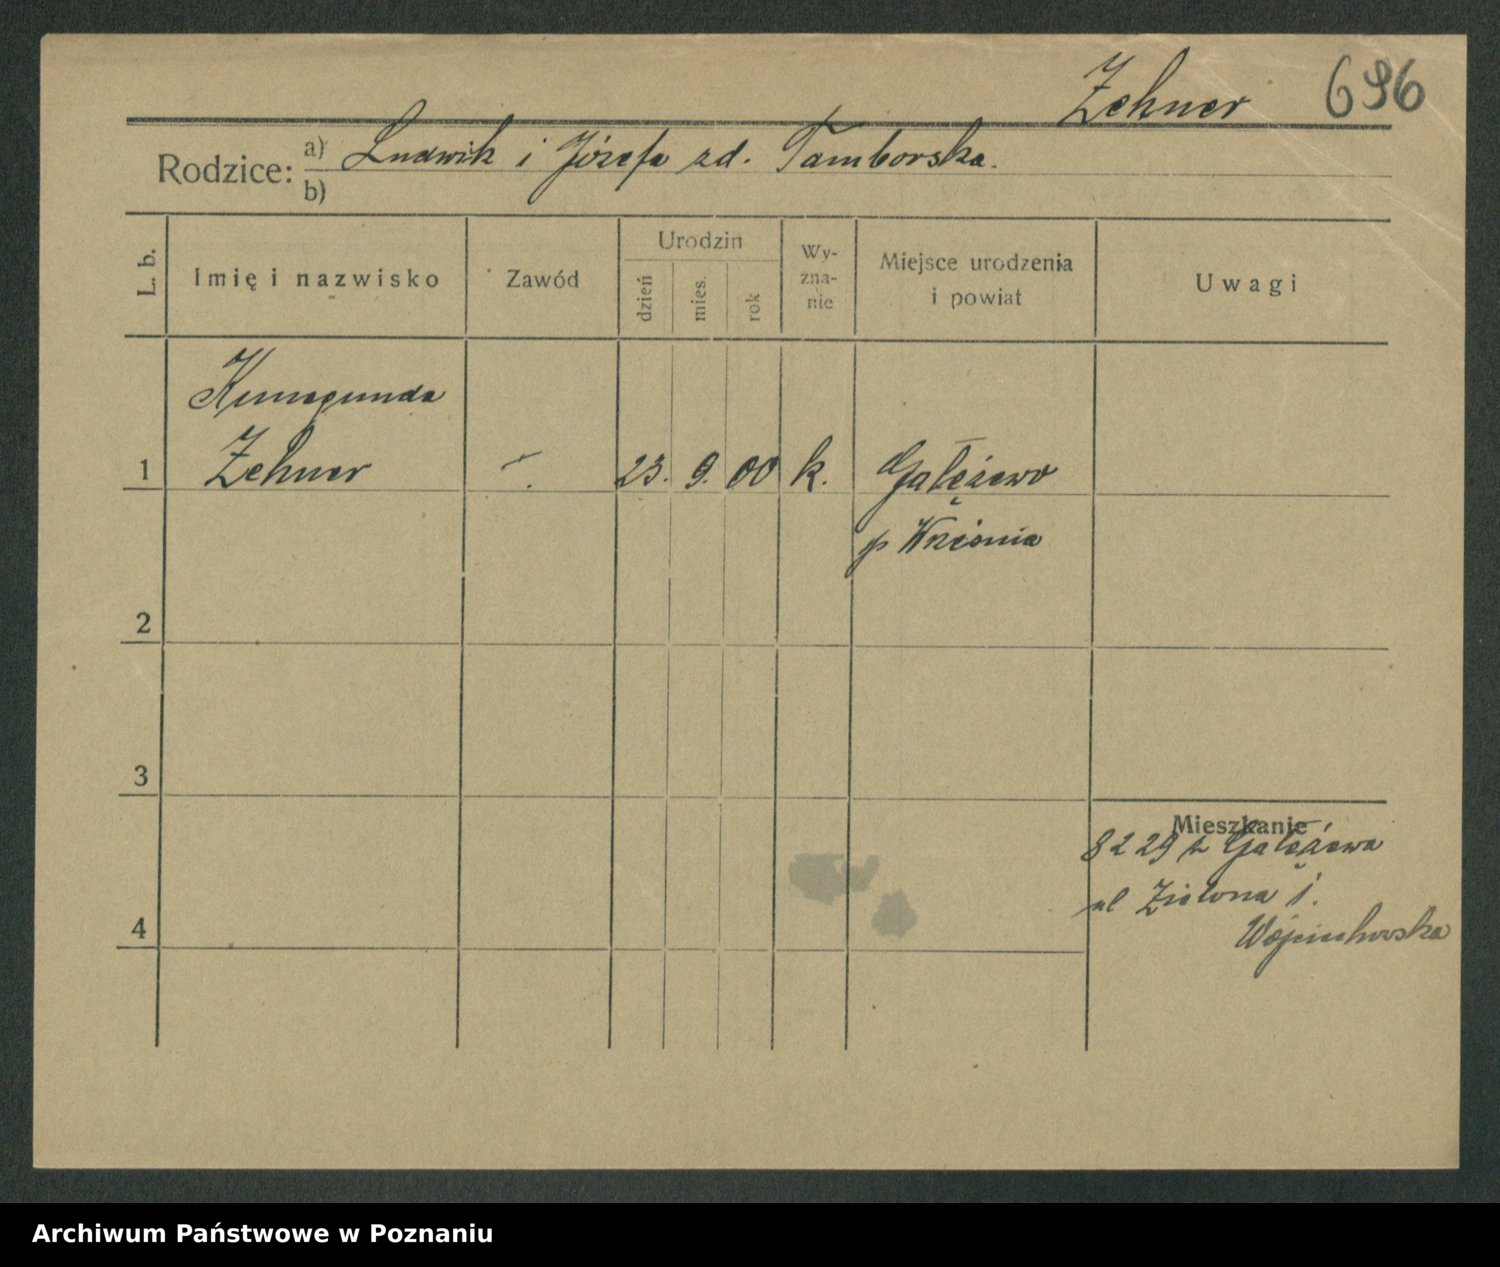 Zehner 696
Rodzice: a) Ludwik i Józefa zd. Tamborska.
b)
L. b.
Imię i nazwisko
Zawód
Urodzin
dzień
mies.
rok
Wy-
zna-
nie
Miejsce urodzenia
i powiat
Uwagi
Kunegunda
1 Zehner - . 23. 9. 00 k. Gałęzewo
p Września
2
3
Mieszkanie
8 2 29 z Gałęzewa
ul Zielona 1.
Wojciechowska
4
Archiwum Państwowe w Poznaniu